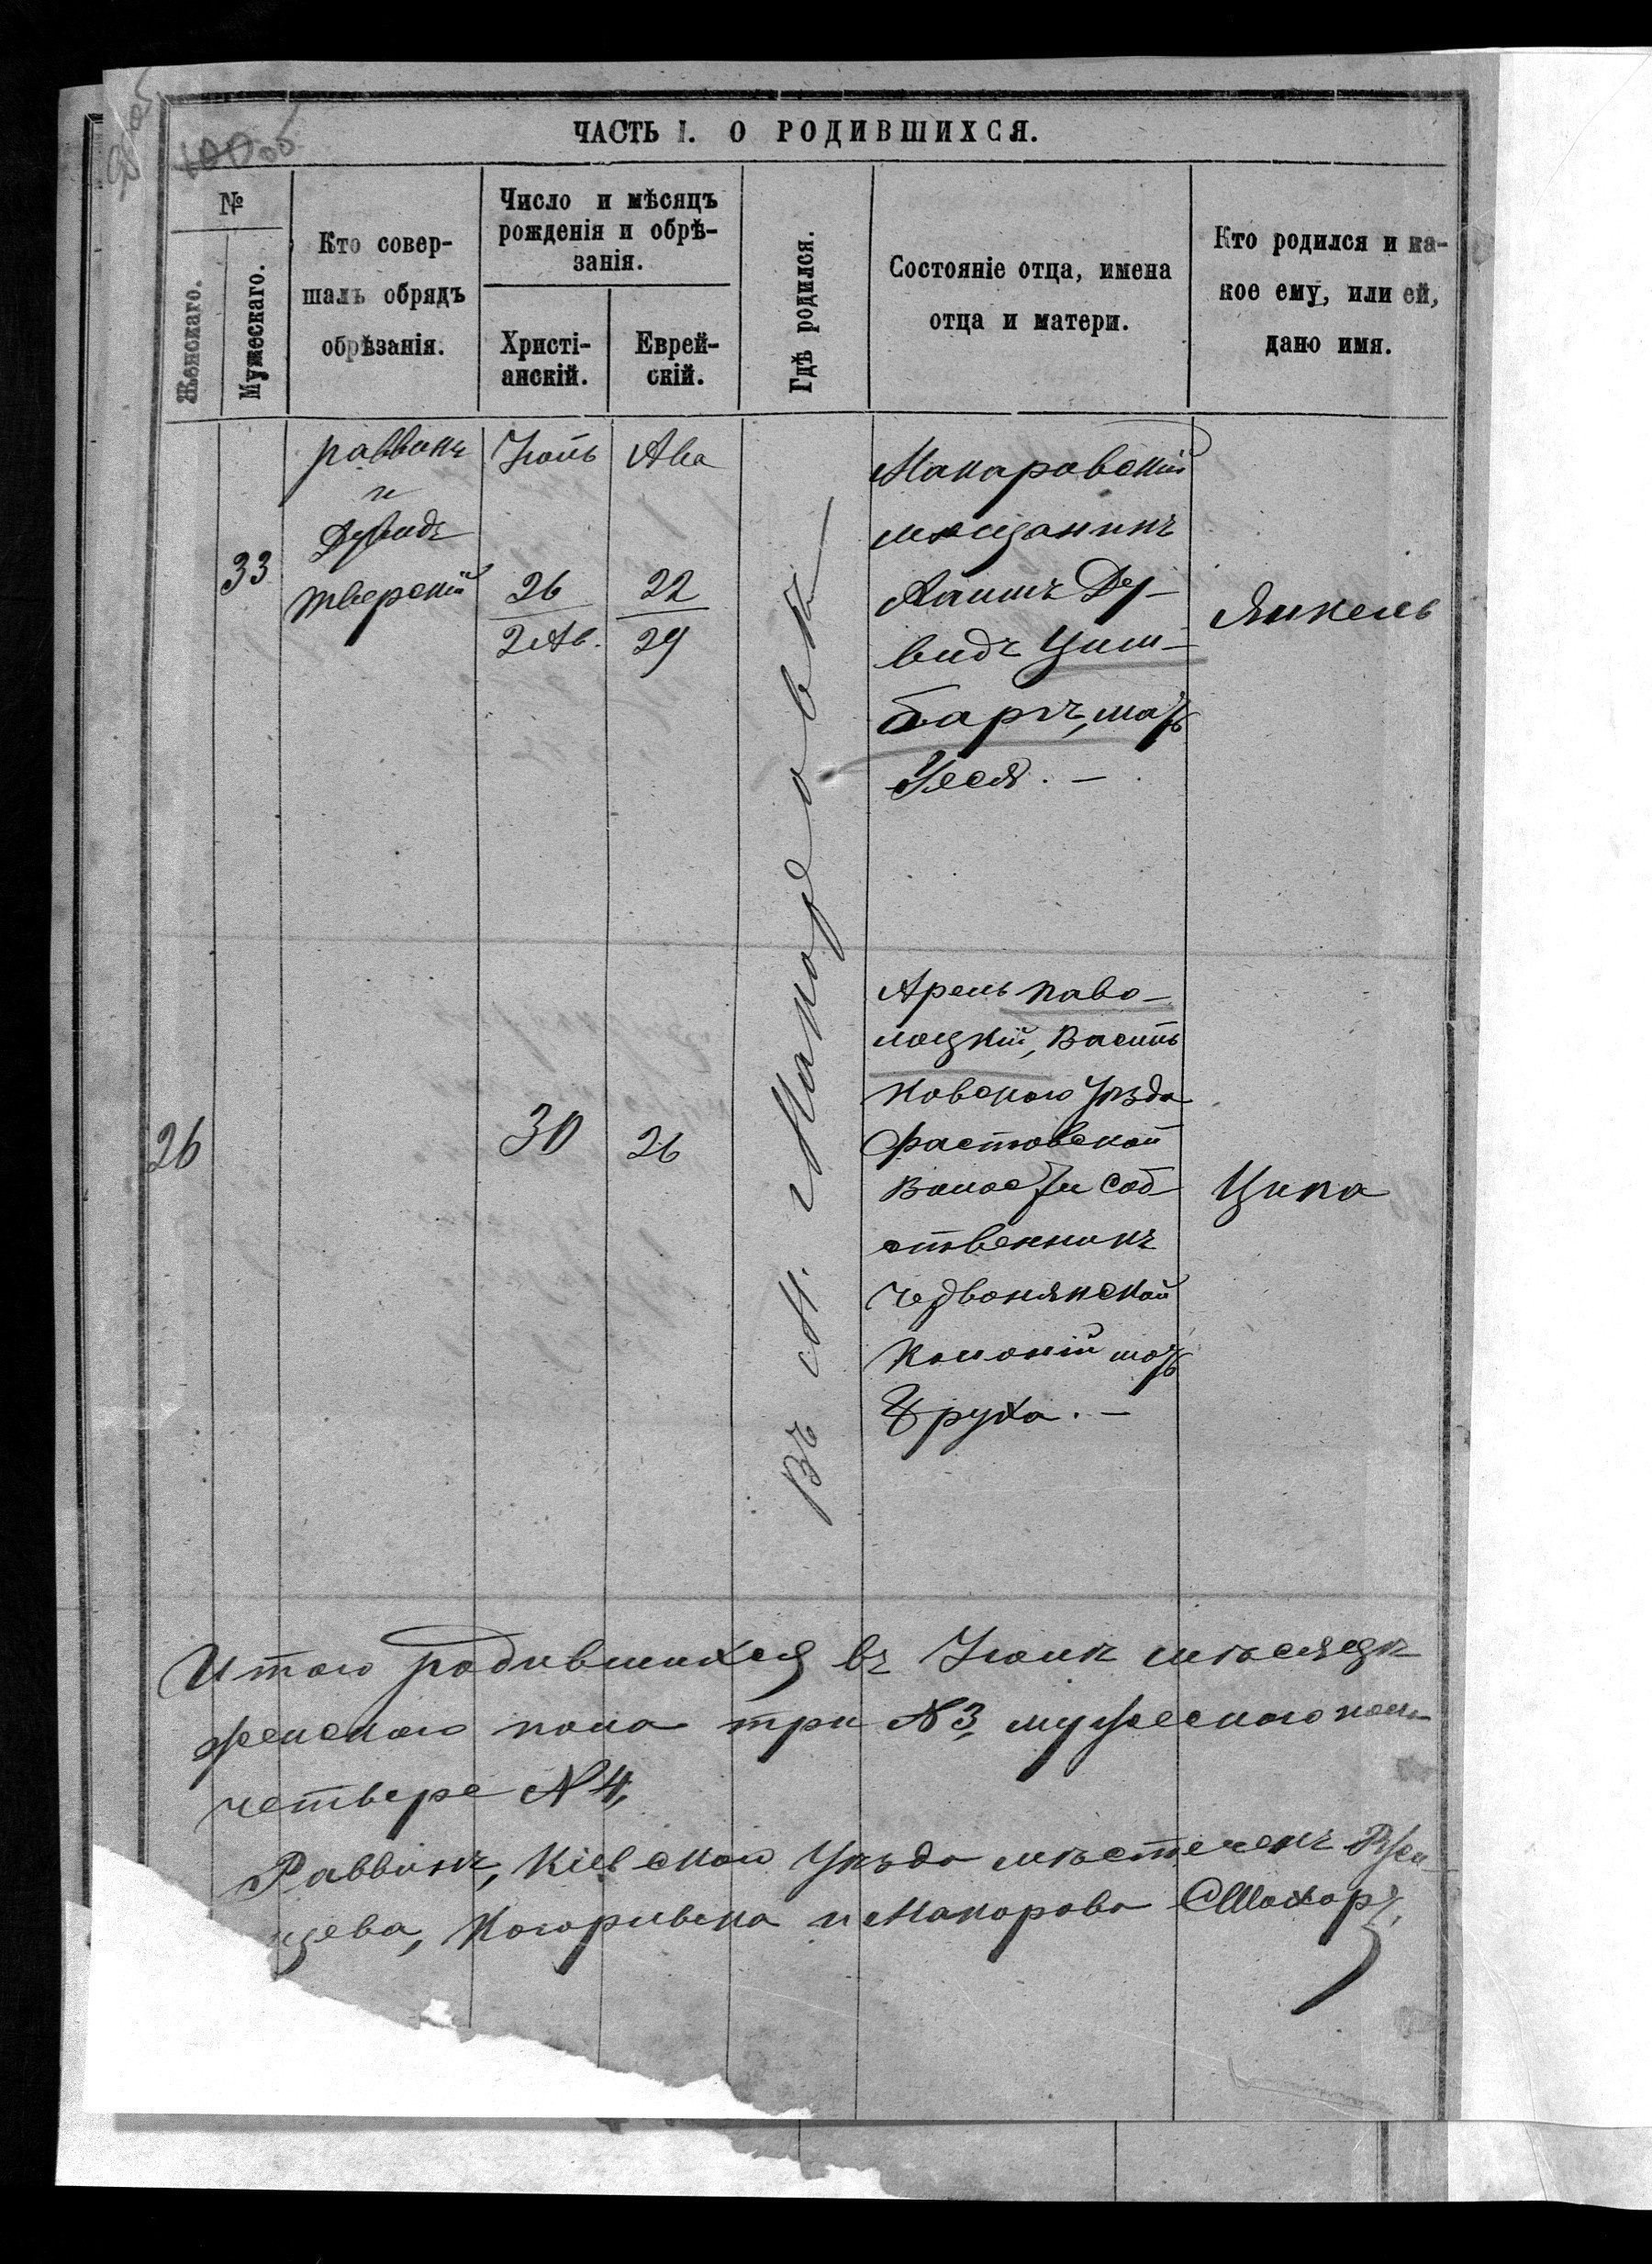 100об
ЧАСТЬ I. О РОДИВШИХСЯ.
№
Женскаго.
Мужескаго.
Кто совер-
шалъ обрядъ
обрѣзанія.
Число и мѣсяцъ
рожденія и обрѣ-
занія.
Христі-
анскій.
Еврей-
скій.
Гдѣ родился.
Состояніе отца, имена
отца и матери.
Кто родился и ка-
кое ему, или ей,
дано имя.
33
раввинъ
и
Дувидъ
Тверскій
Іюль
26
2 Ав.
Ава
22
29
Въ м. Макаровѣ
Макаровскій
мѣщанинъ
Хаимъ Ду-
видъ Цим-
барг, мать
Неся. —
Янкель
26
30
26
Арель Паво-
лоцкій, Василь
ковскаго уѣзда
Фастовской
Волости соб-
ственникъ
Червонянской
Колоніи мать
Фруха. —
Ципа
Итого родившихся въ Іюлѣ мѣсяцѣ
женскаго пола три №3, мужескаго пола
четверо №4,
Раввинъ, Кіевскаго Уѣзда мѣстечекъ
щева, и Макарова